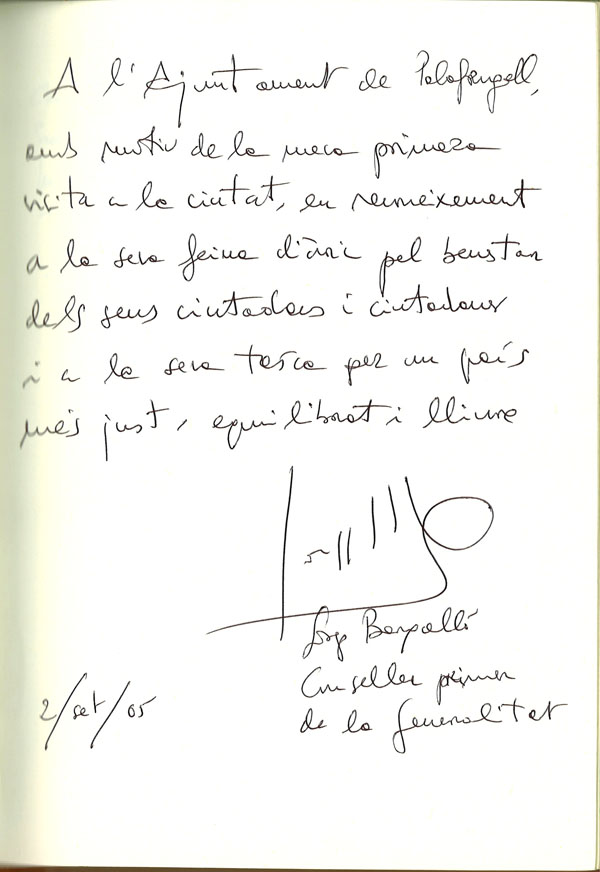 A l'Ajuntament de Palafrugell,
amb motiu de la meva primera
visita a la ciutat, en reconeixement
a la seva feina diària pel benestar
dels seus ciutadans i ciutadanes
i a la seva tasca per un país
més just, equilibrat i lliure
Josep Bargalló
Conseller primer
de la Generalitat
2/set/05